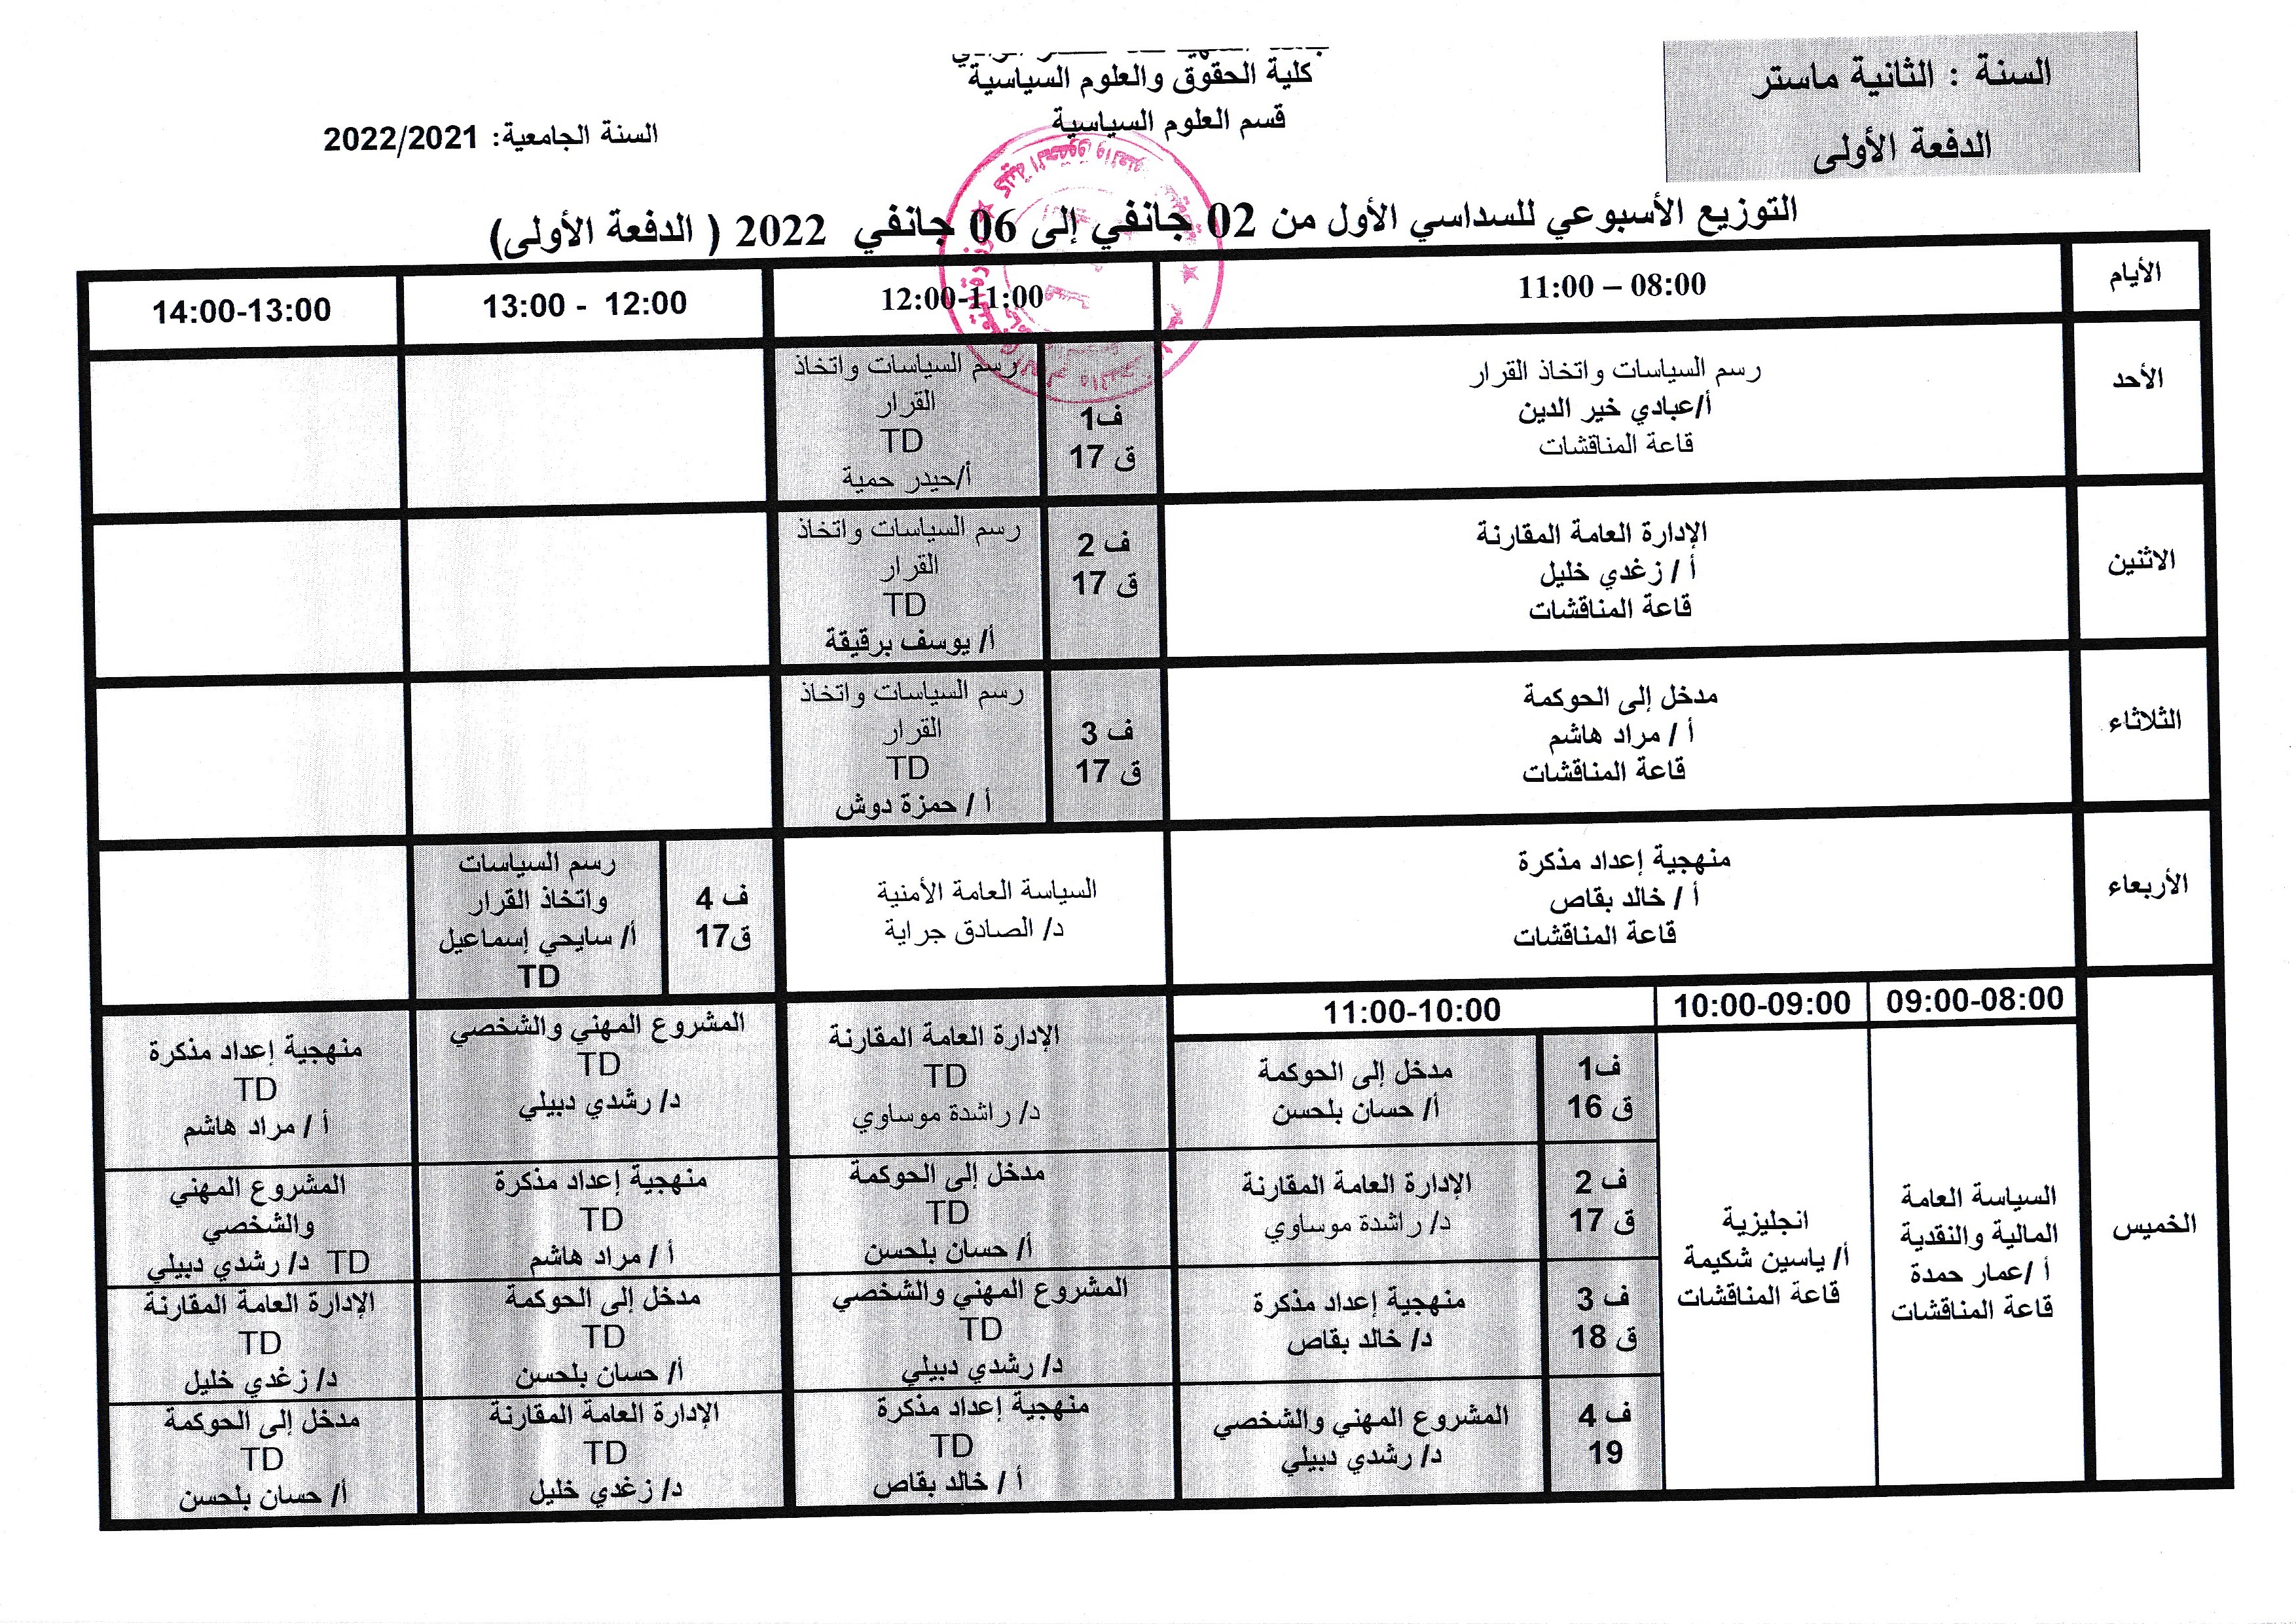 السنة : الثانية ماستر
الدفعة الأولى
كلية الحقوق والعلوم السياسية
قسم العلوم السياسية
السنة الجامعية: 2022/2021
التوزيع الأسبوعي للسداسي الأول من 02 جانفي إلى 06 جانفي 2022 ( الدفعة الأولى)
الأيام
11:00 – 08:00
12:00-11:00
13:00 - 12:00
14:00-13:00
الأحد
رسم السياسات واتخاذ القرار
أ/عبادي خير الدين
قاعة المناقشات
ف1
ق 17
رسم السياسات واتخاذ
القرار
TD
أ/حيدر حمية
الاثنين
الإدارة العامة المقارنة
أ / زغدي خليل
قاعة المناقشات
ف 2
ق 17
رسم السياسات واتخاذ
القرار
TD
أ/ يوسف برقيقة
الثلاثاء
مدخل إلى الحوكمة
أ / مراد هاشم
قاعة المناقشات
ف 3
ق 17
رسم السياسات واتخاذ
القرار
TD
أ / حمزة دوش
الأربعاء
منهجية إعداد مذكرة
أ / خالد بقاص
قاعة المناقشات
السياسة العامة الأمنية
د/ الصادق جراية
ف 4
ق17
رسم السياسات
واتخاذ القرار
أ/ سايحي إسماعيل
TD
الخميس
09:00-08:00
10:00-09:00
11:00-10:00
السياسة العامة
المالية والنقدية
أ /عمار حمدة
قاعة المناقشات
انجليزية
أ/ ياسين شكيمة
قاعة المناقشات
ف1
ق 16
مدخل إلى الحوكمة
أ/ حسان بلحسن
الإدارة العامة المقارنة
TD
د/ راشدة موساوي
المشروع المهني والشخصي
TD
د/ رشدي دبيلي
منهجية إعداد مذكرة
TD
أ / مراد هاشم
ف 2
ق 17
الإدارة العامة المقارنة
د/ راشدة موساوي
مدخل إلى الحوكمة
TD
أ/ حسان بلحسن
منهجية إعداد مذكرة
TD
أ / مراد هاشم
المشروع المهني
والشخصي
TD د/ رشدي دبيلي
ف 3
ق 18
منهجية إعداد مذكرة
د/ خالد بقاص
المشروع المهني والشخصي
TD
د/ رشدي دبيلي
مدخل إلى الحوكمة
TD
أ/ حسان بلحسن
الإدارة العامة المقارنة
TD
د/ زغدي خليل
ف 4
19
المشروع المهني والشخصي
د/ رشدي دبيلي
منهجية إعداد مذكرة
TD
أ / خالد بقاص
الإدارة العامة المقارنة
TD
د/ زغدي خليل
مدخل إلى الحوكمة
TD
أ/ حسان بلحسن